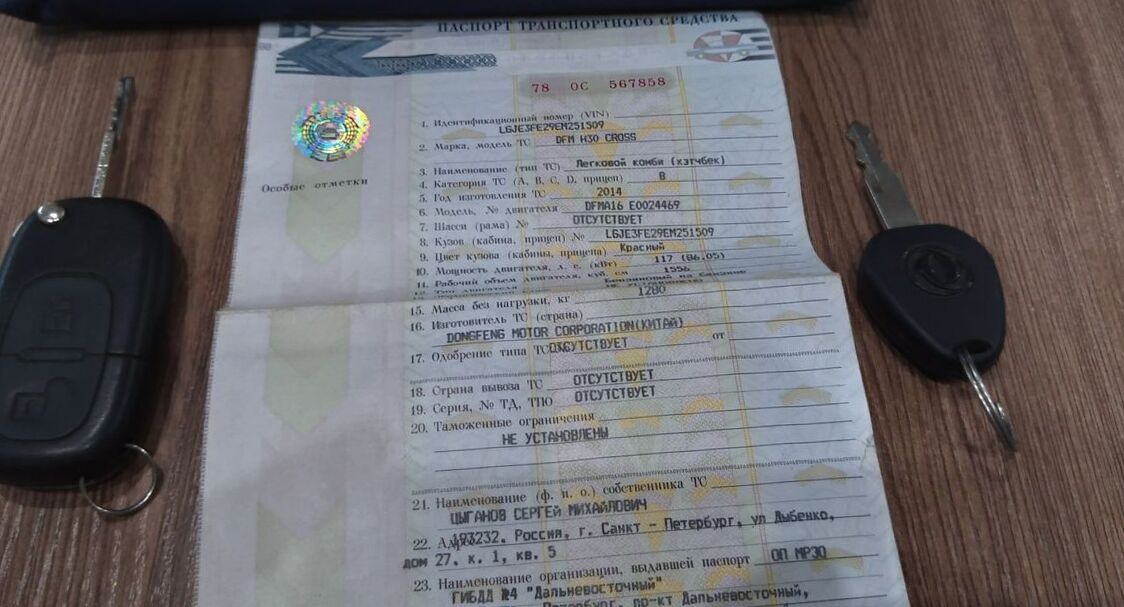 ПАСПОРТ ТРАНСПОРТНОГО СРЕДСТВА
78 ОС 567858
1. Идентификационный номер (VIN)
L6JE3FE29EM251509
2. Марка, модель ТС DFM H30 CROSS
3. Наименование (тип ТС) Легковой комби (хэтчбек)
Особые отметки
4. Категория ТС (A, B, C, D, прицеп) В
5. Год изготовления ТС 2014
6. Модель, № двигателя DFMA16 E0024469
7. Шасси (рама) № ОТСУТСТВУЕТ
8. Кузов (кабина, прицеп) № L6JE3FE29EM251509
9. Цвет кузова (кабины, прицепа) Красный
10. Мощность двигателя, л. с. (кВт) 117 (86.05)
11. Рабочий объем двигателя, куб. см 1556
Бензиновый на бензине
15. Масса без нагрузки, кг 1280
16. Изготовитель ТС (страна)
DONGFENG MOTOR CORPORATION(КИТАЙ)
17. Одобрение типа ТС ОТСУТСТВУЕТ от
18. Страна вывоза ТС ОТСУТСТВУЕТ
19. Серия, № ТД, ТПО ОТСУТСТВУЕТ
20. Таможенные ограничения
НЕ УСТАНОВЛЕНЫ
21. Наименование (ф. и. о.) собственника ТС
ЦЫГАНОВ СЕРГЕЙ МИХАЙЛОВИЧ
22. 193232, Россия, г. Санкт - Петербург, ул Дыбенко,
дом 27, к. 1, кв. 5
23. Наименование организации, выдавшей паспорт ОП МРЭО
ГИБДД №4 "Дальневосточный"
Петербург, пр-кт Дальневосточный,